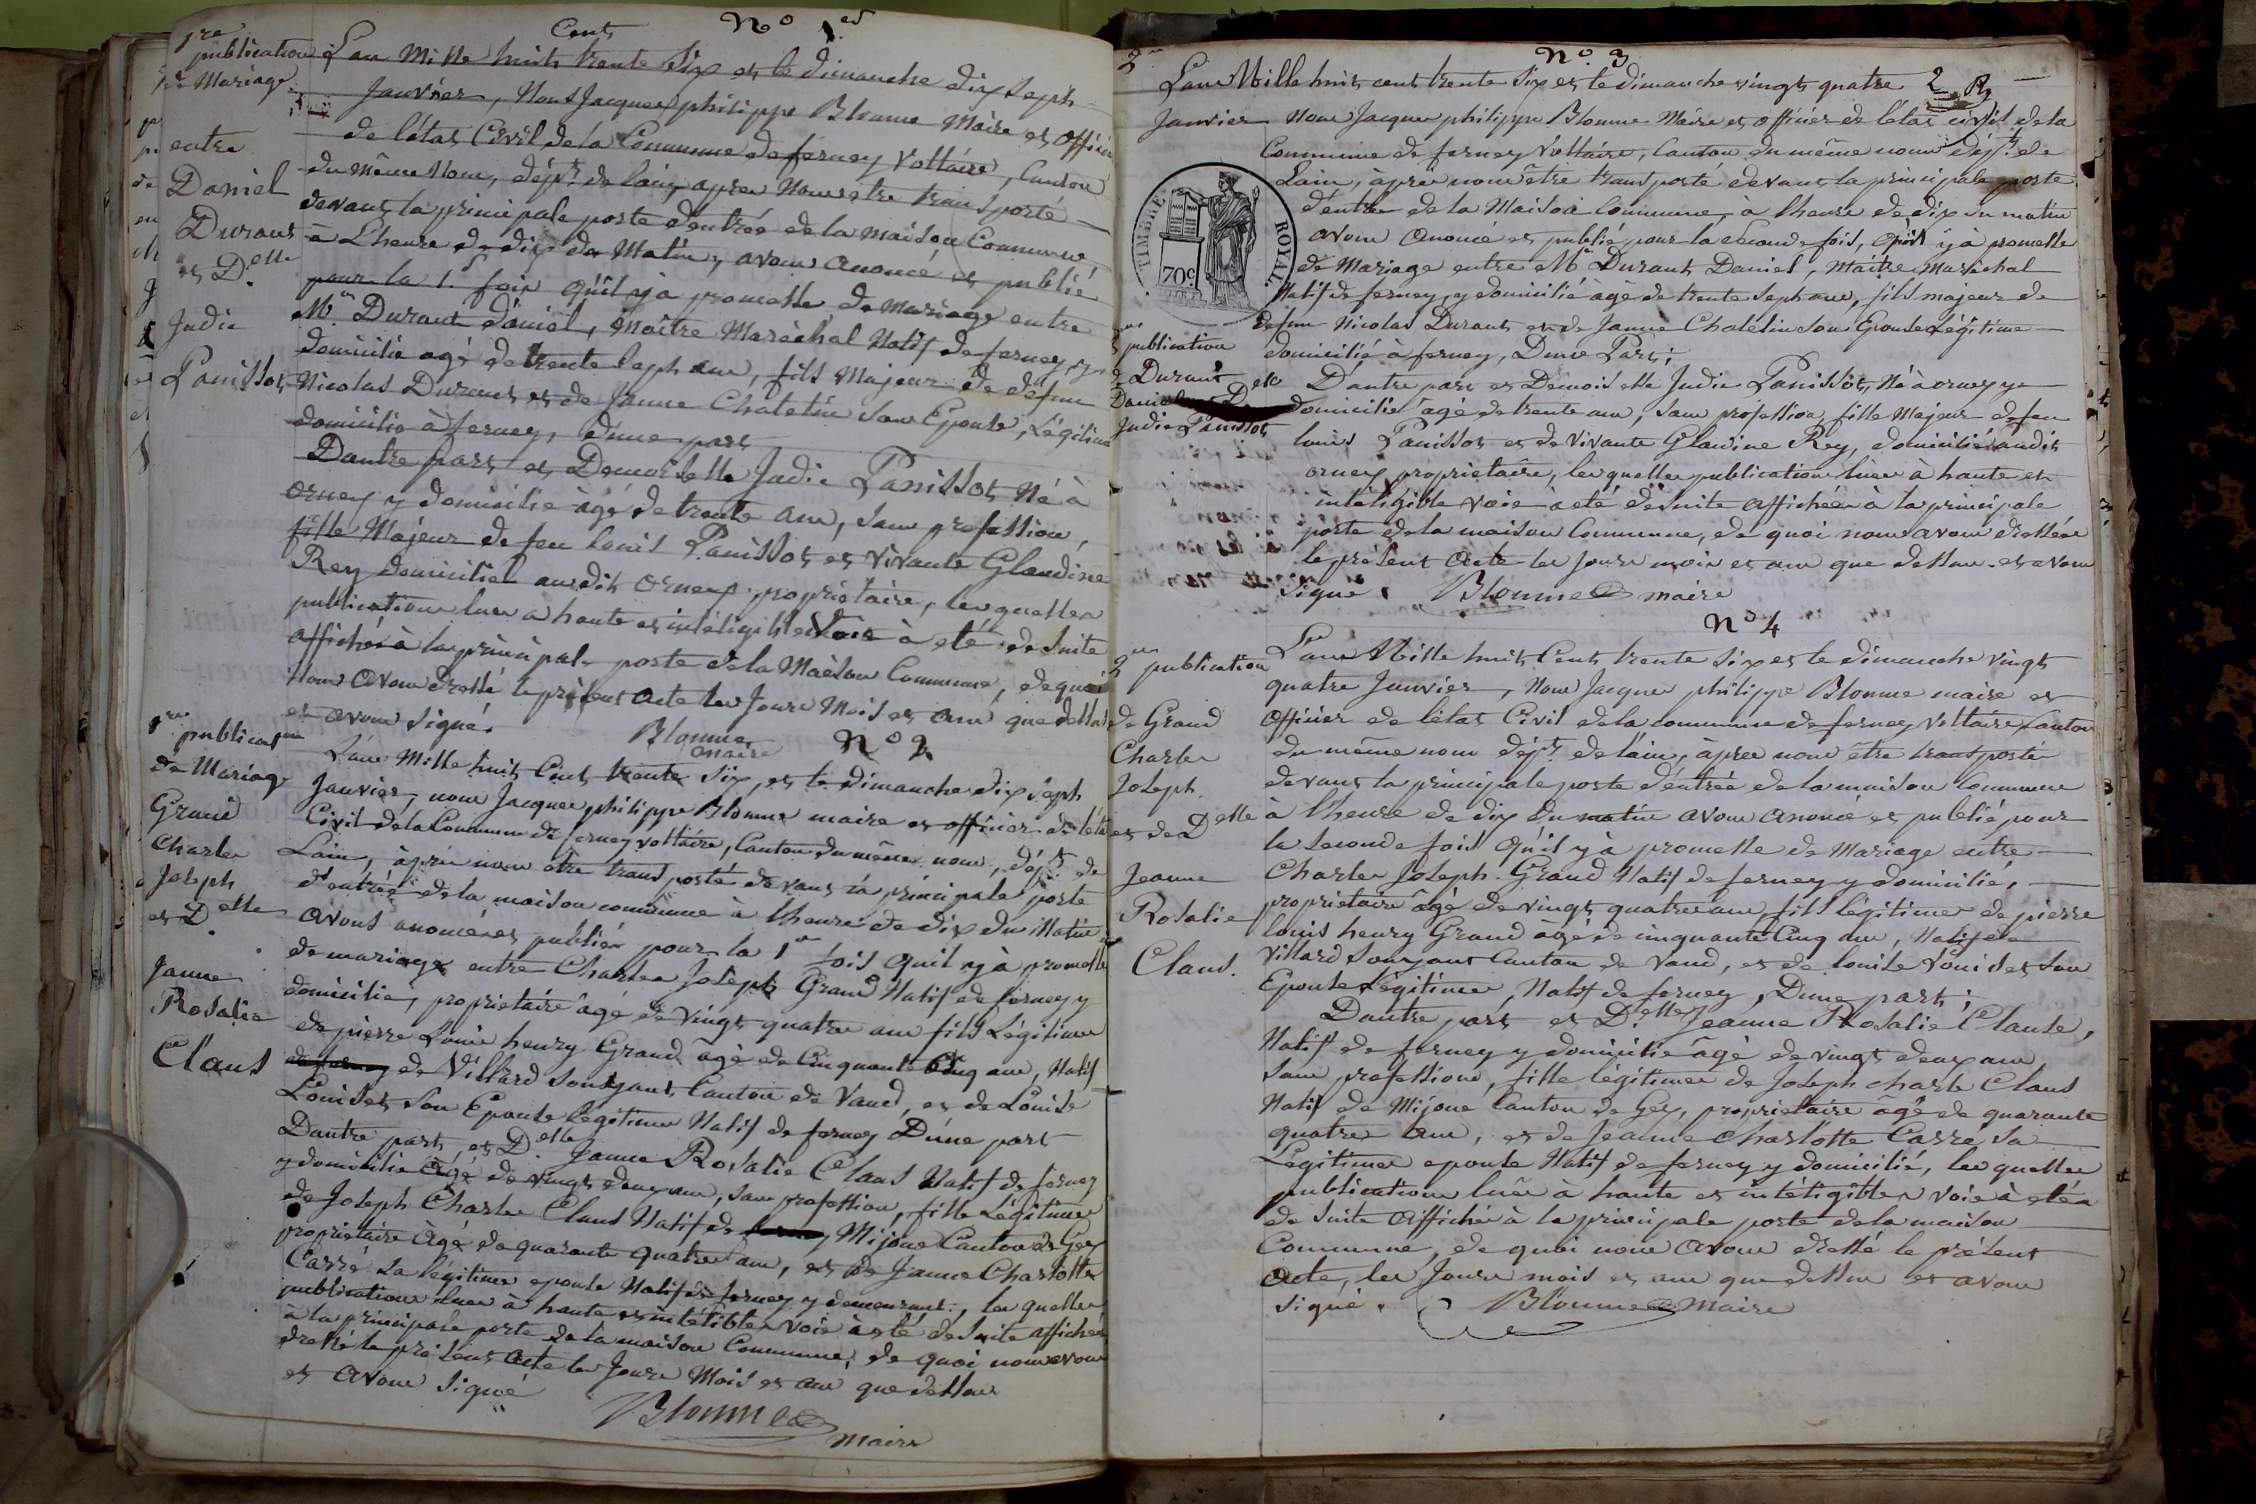 1re publication
de Mariage
entre
Daniel
Durant
et D.elle
Judie
Panissot
No 1er
Cent
L'an Mille huit trente Six et le dimanche dix Sept
Janvier, Nous Jacques philippe Blonme Maire et officier
de l'état Civil de la Commune de ferney Voltaire, Canton
du même Nom, dépt. de lain, apres Nous etre transporté
devant la principale porte d'entrée de la maison Commune
à L'heure de dix du Matin, avons anoncé et publié
pour la 1. fois qu'il y à promesse de mariage entre
Mr. Durant daniel, maître Maréchal Natif de ferney, y
domicilié agé de trente Sept ans, fils Majeur de defun
Nicolas Durant et de Janne Chatelin Son Epouse, Légitime
domicilié à ferney, d'une part
Dautre part et Demoiselle Judie Panissot, Né à
Ornex y domicilié âgé de trente ans, Sans profession,
fille Majeur de feu Louis Panissot et Vivante Glaudine
Rey domiciliés audit Ornex proprietaire, les quelles
publications lues a haute et inteligibles Voix à eté de Suite
affichés à la principale porte de la Maison Commune, de quoi
Nous avons dressé le présent acte les Jours Mois et ans que dessus
et avons signé.
Blonme
maire
No 2
1re publication
de Mariage
Grand
Charles
Joseph
et D.elle
Janne
Rosalie
Claus
L'an Mille huit Cent trente Six, et le dimanche dix Sept
Janvier, nous Jacques philippe Blonme maire et officier de l'état
Civil de la Commune de ferney voltaire, Canton du même nom, dépt. de
Lain, àprés nous être transporté devant la principale porte
d'entrée de la maison commune à l'heure de dix du Matin
avons anoncé et publiér pour la 1re fois qu'il y à promesse
de mariage entre Charles Joseph Grand Natif de ferney y
domicilié, proprietaire âgé de vingt quatre ans fils Légitime
de pierre Louis henry Grand âgé de Cinquante Cinq ans, Natif
de ferney de Villard Sousyant Canton de Vaud, et de Louise
Louiset Son Epouse légitime Natif de ferney D'une part
Dautre part, et D.elle Janne Rosalie Claus Natif de ferney
y domicilié âgé de vingt deux ans, Sans profession, fille Légitime
de Joseph Charles Claus Natif de ferney Mijoue Canton de Gex
proprietaire âgé de quarante quatre ans, et de Janne Charlotte
Carré Sa légitime epouse Natif de ferney y demeurant, les quelles
publications lues à haute et intélibles voix à eté de Suite affichés
à la principale porte de la maison Commune, de quoi nous avons
dressé le présent acte les Jours Mois et ans que dessus
et avons signé
Blonme
Maire
No. 3
2 R
L'an Mille huit cent trente Six et le dimanche vingt quatre
Janvier Nous Jacques philippe Blonme Maire et officier de l'état civil de la
Commune de ferney Voltaire, Canton du même nom dépt. de
Lain, àprés nous être transporté devant la principale porte
d'entrée de la Maison Commune, à l'heure de dix du matin
avons anoncé et publié pour la seconde fois, qu'il y à promesse
de Mariage entre Mr Durant Daniel, Maître Maréchal
Natif de ferney, y domicilié âgé de trente Sept ans, fils majeur de
defun Nicolas Durant et de Janne Chatelin Son Epouse Légitime
domicilié à ferney, D'une Part;
TIMBRE ROYAL
70c.
publication
Durant
Daniel et Delle
Judie Panissot
D'autre part et Demoiselle Judie Panissot, Né à ornex y
domicilié âgé de trente ans, Sans profession, fille Majeur de feu
louis Panissot et de Vivante Glaudine Rey, domiciliés audit
ornex proprietaire, les quelles publications lues à haute et
intéligible voix à eté de Suite affichées à la principale
porte de la maison Commune, de quoi nous avons dressée
le présent acte les Jours mois et ans que dessus et avons
signé. Blonme maire
No 4
2me publication
de Grand
Charles
Joseph
et de Delle
Jeanne
Rosalie
Claus.
L'an Mille huit Cent trente Six et le dimanche vingt
quatre Janvier, Nous Jacques philippe Blonme maire et
officier de l'état Civil de la commune de ferney Voltaire Canton
du même nom dépt. de l'ain, àpres nous être transporté
devant la principale porte d'entrée de la maison Commune
à l'heure de dix du matin avons anoncé et publié pour
la Seconde fois qu'il y à promesse de Mariage entre
Charles Joseph Grand Natif de ferney y domicilié,
proprietaire âgé de vingt quatre ans, fils légitime de pierre
louis henry Grand âgé de cinquante Cinq ans, Natif de
Villard Sousyant Canton de Vaud, et de Louise Louiset Son
Epouse Légitime, Natif de ferney, D'une part;
Dautre part et D.elle Jeanne Rosalie Clause,
Natif de ferney y domicilié âgé de vingt deux ans
Sans profession, fille légitime de Joseph charle Claus
Natif de Mijoue Canton de Gex, proprietaire âgé de quarante
quatre ans, et de Jeanne Charlotte Carré Sa
Légitime epouse Natif de ferney y domicilié, les quelles
publications luës à haute et intéligibles voix à etée
de Suite affiché à la principale porte de la maison
Commune, de quoi nous avons dressé le présent
acte, les Jours mois et ans que dessus et avons
signé. Blonme Maire